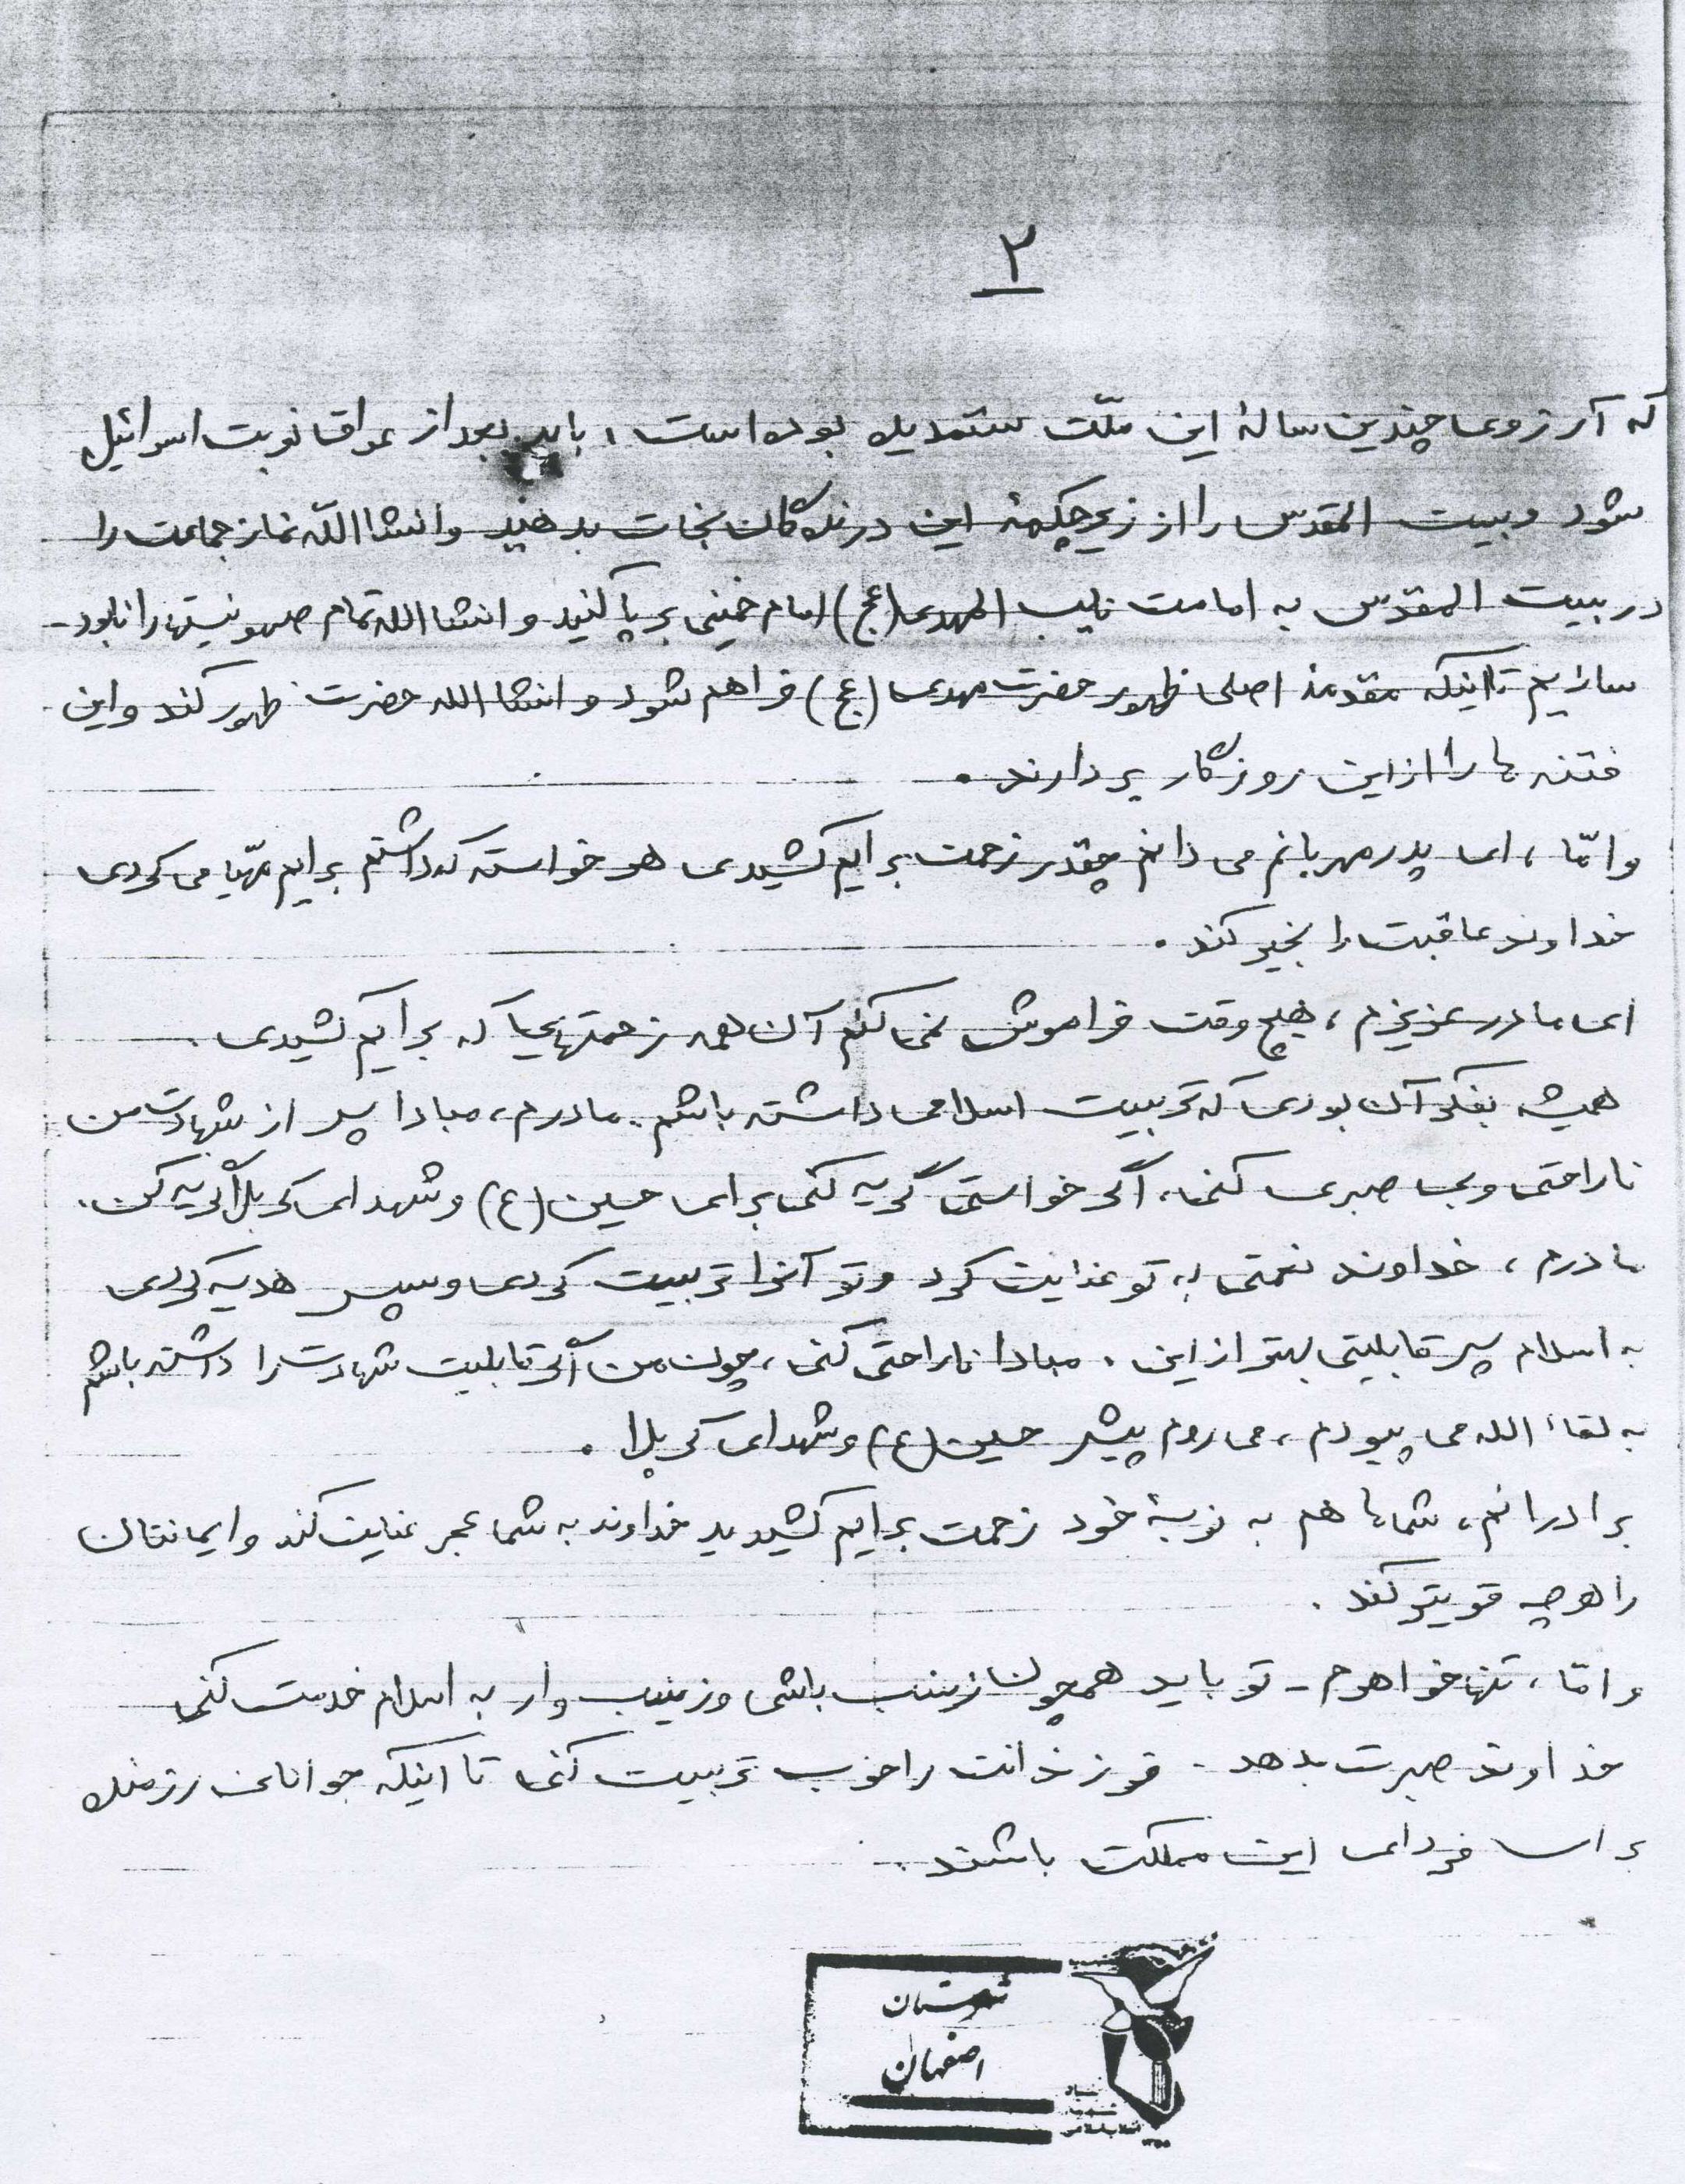 ۲
که آرزوی چندین سالهٔ این ملّت ستمدیده بوده است، باید بعد از عراق نوبت اسرائیل
شود و بیت المقدس را از زیر چکمهٔ این درندگان نجات بدهید و انشا اللّه نماز جماعت را
در بیت المقدس به امامت نایب المهدی (عج) امام خمینی بر پا کنید و انشا الله تمام صهونیستها را نابود -
سازیم تا اینکه مقدمهٔ اصلی ظهور حضرت مهدی (عج) فراهم شود و انشا الله حضرت ظهور کند و این
فتنه ها را از این روزگار بردارند.
و امّا، ای پدر مهربانم می دانم چقدر زحمت برایم کشیدی هر خواسته که داشتم برایم مهّیا می کردی
خداوند عاقبت را بخیر کند.
ای مادر عزیزم، هیچ وقت فراموش نمی کنم آن همه زحمتهایی که برایم کشیدی.
همیشه بفکر آن بودی که تربیت اسلامی داشته باشم. مادرم، مبادا پس از شهادت من
ناراحتی و بی صبری کنی، اگر خواستی گریه کنی برای حسین (ع) و شهدای کربلا گریه کن.
مادرم، خداوند نعمتی به تو عنایت کرد و تو آنرا تربیت کردی و سپس هدیه کردی
به اسلام پس قابلیتی بهتر از این. مبادا ناراحتی کنی، چون من اگر قابلیت شهادت را داشته باشم
به لقاء الله می پیوندم، می روم پیش حسین (ع) و شهدای کربلا.
برادرانم، شماها هم به نوبهٔ خود زحمت برایم کشیدید خداوند به شما عجر عنایت کند و ایمانتان
را هرچه قویتر کند.
و امّا، تنها خواهرم - تو باید همچون زینب باشی و زینب وار به اسلام خدمت کنی
خداوند صبرت بدهد. فرزندانت را خوب تربیت کنی تا اینکه جوانانی رزمنده
برای فردای این مملکت باشند.
شهرستان
اصفهان
بنیاد
شهید
انقلاب اسلامی